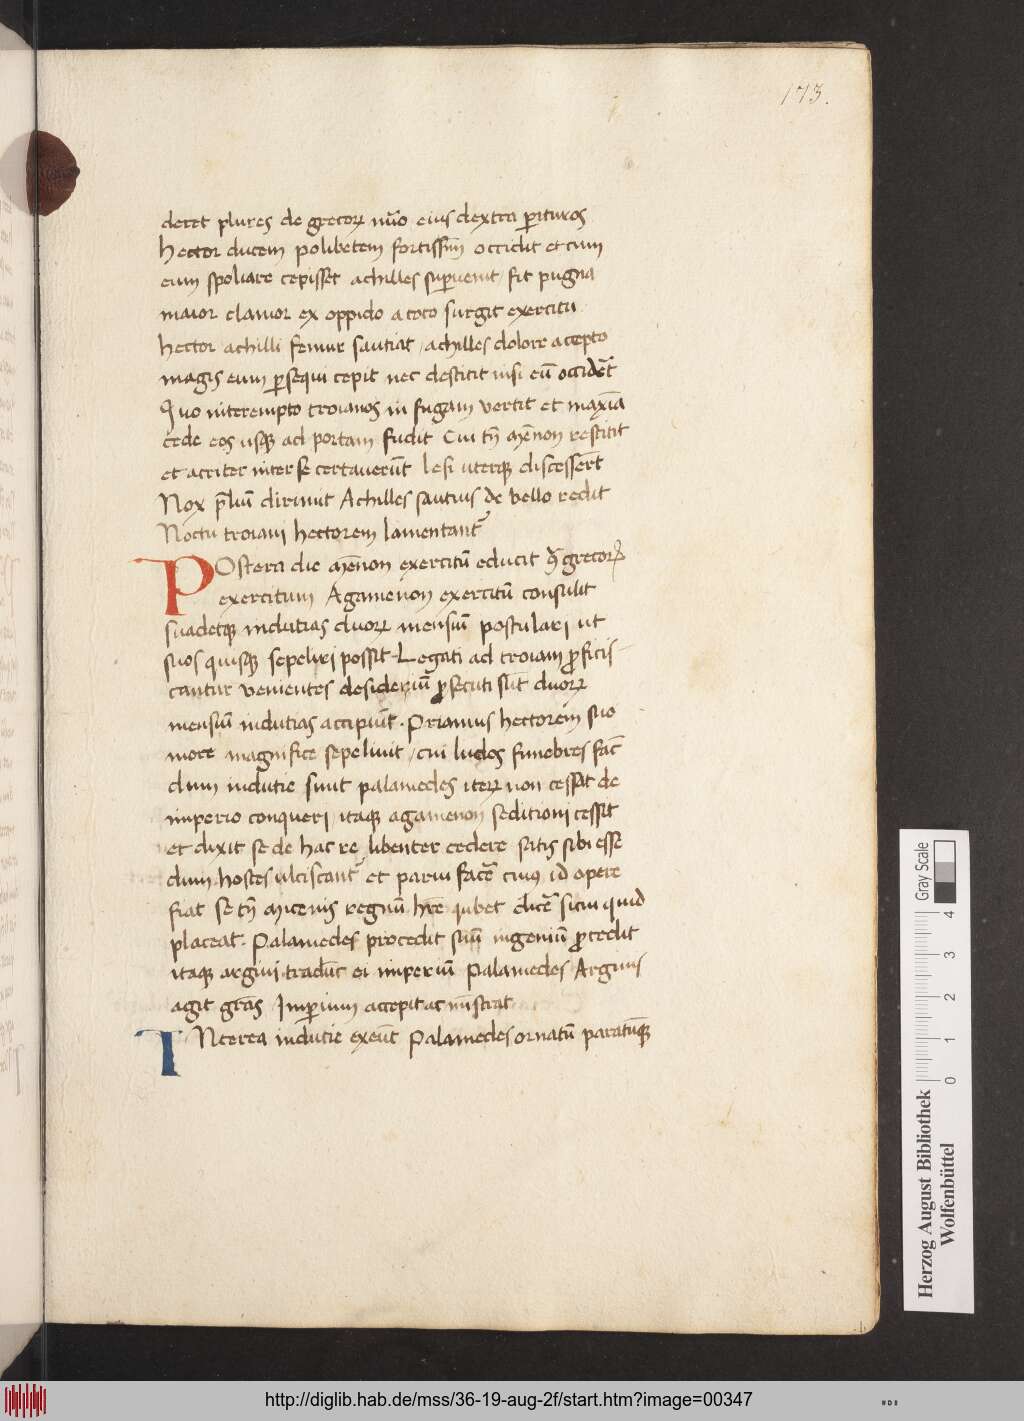 173.
deret plures de grecoꝝ nūo eius dextra ꝑituros
Hector ducem polibetem fortissīm occidit et cum
eum spoliare cepisset achilles suꝑuenit fit pugna
maior clamor ex oppido a toto surgit exercitu
hector achilli femur sautiat / achilles dolore accepto
magis eum ꝑsequi cepit nec destitit nisi eū occidēt
Quo interempto troianos in fugam vertit et maxīa
cede eos usqꝫ ad portam fudit Cui tn̄ mēnon restitit
et acriter inter se certauerūt lesi uterqꝫ discesserūt
Nox p̄liū dirimit Achilles sautius de bello redit
Noctu troiani hectorem lamentant᷑
POstera die mēnon exercitū educit ꝯ̄ grecoꝝ
exercitum Agamenon exercitū consulit
suadetqꝫ indutias duoꝝ mensiū postulari ut
suos quisqꝫ sepeliri possit Legati ad troiam ꝓficis-
cantur venientes desideriū ꝓsecuti sūt duoꝝ
mensiū indutias accipiūt. Priamus hectorem suo
more magnifice sepeliuit / cui ludos funebres fac̄
dum indutie sunt palamedes iteꝝ non cessat de
imperio conqueri / itaqꝫ agamenon seditioni cessit
et dixit se de hac re libenter cedere satis sibi esse
dum hostes ulciscant᷑ et parui facē cuiꝰ id opere
fiat se tn̄ micenis regnū hr̄e iubet dicē sicui quid
placeat. Palamedes procedit suū ingeniū ꝓcedit
itaqꝫ argiui tradūt ei imperiū Palamedes Argiuis
agit grās Imꝑium accepit ac mīstrat
INterea indutie exeūt Palamedes ornatū paratūqꝫ
Herzog August Bibliothek
Wolfenbüttel
Gray Scale
0 1 2 3 4
http://diglib.hab.de/mss/36-19-aug-2f/start.htm?image=00347